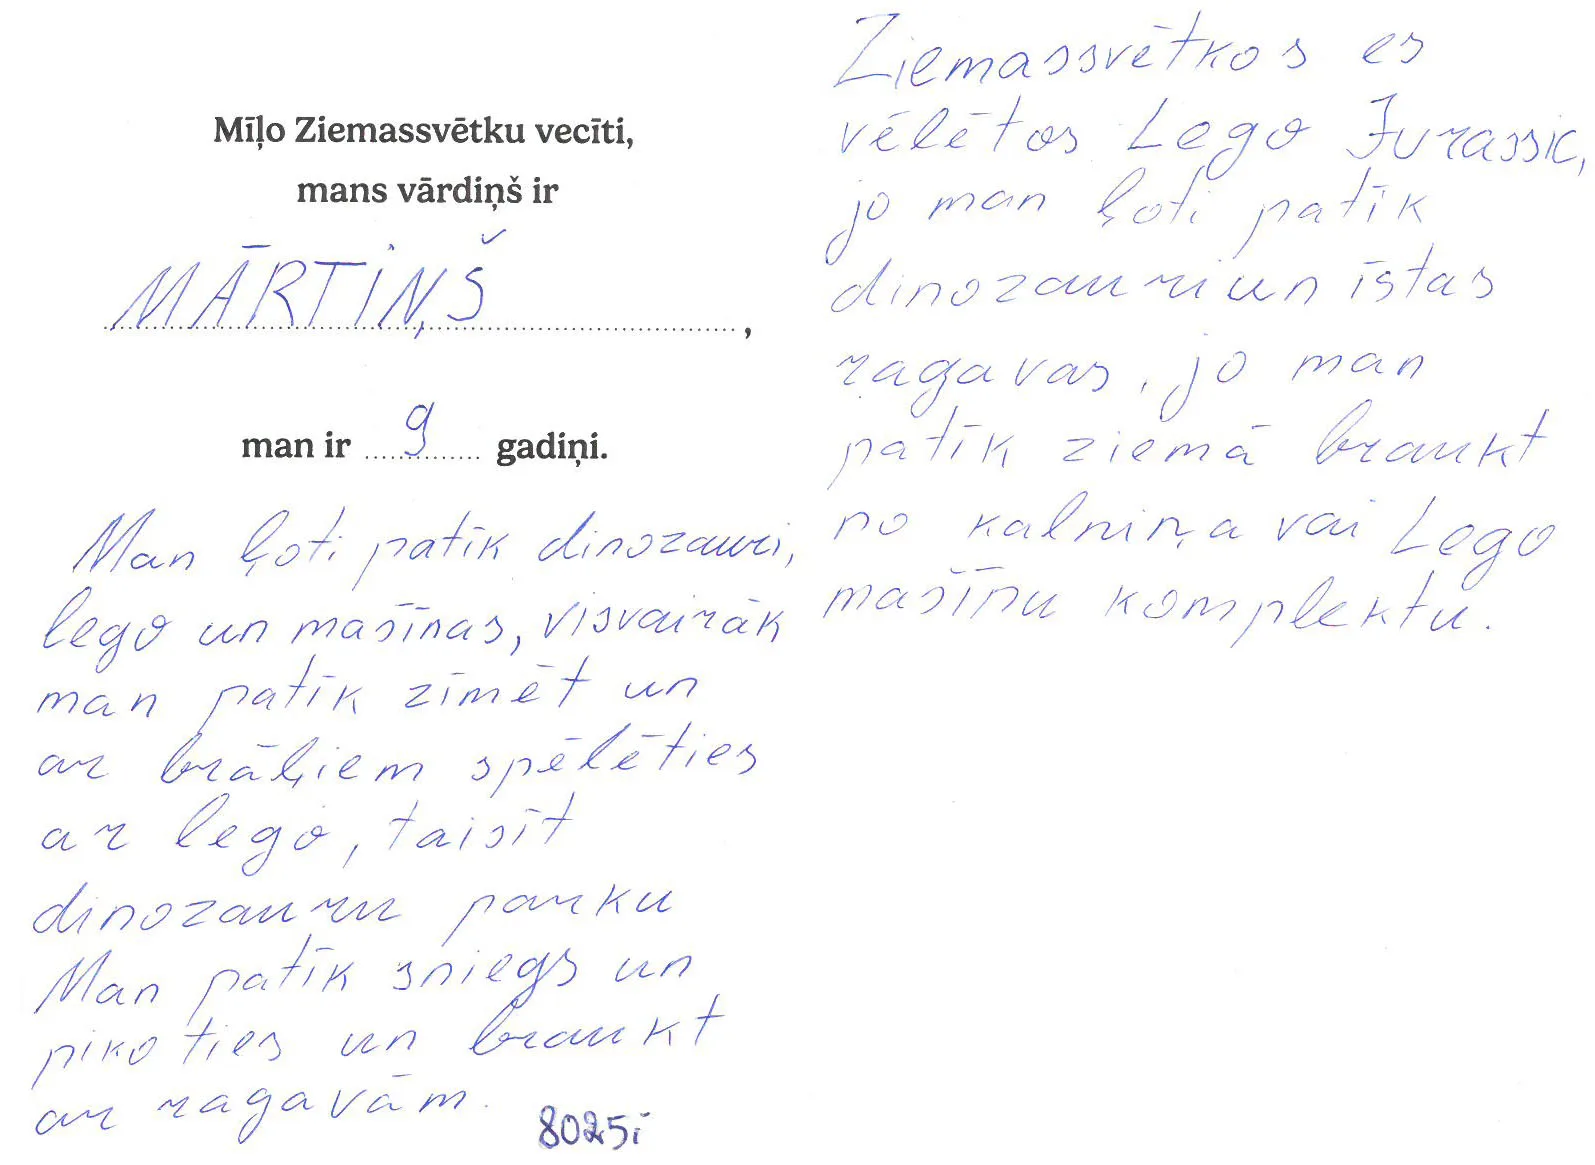 Mīļo Ziemassvētku vecīti,
mans vārdiņš ir
MĀRTIŅŠ,
man ir 9 gadiņi.
Man ļoti patīk dinozauri,
lego un mašīnas, visvairāk
man patīk zīmēt un
ar brāļiem spēlēties
ar lego, taisīt
dinozauru parku
Man patīk sniegs un
pikoties un braukt
ar ragavām.
8025i
Ziemassvētkos es
vēlētos Lego Jurassic,
jo man ļoti patīk
dinozauri un īstas
ragavas, jo man
patīk ziemā braukt
no kalniņa vai Lego
mašīnu komplektu.